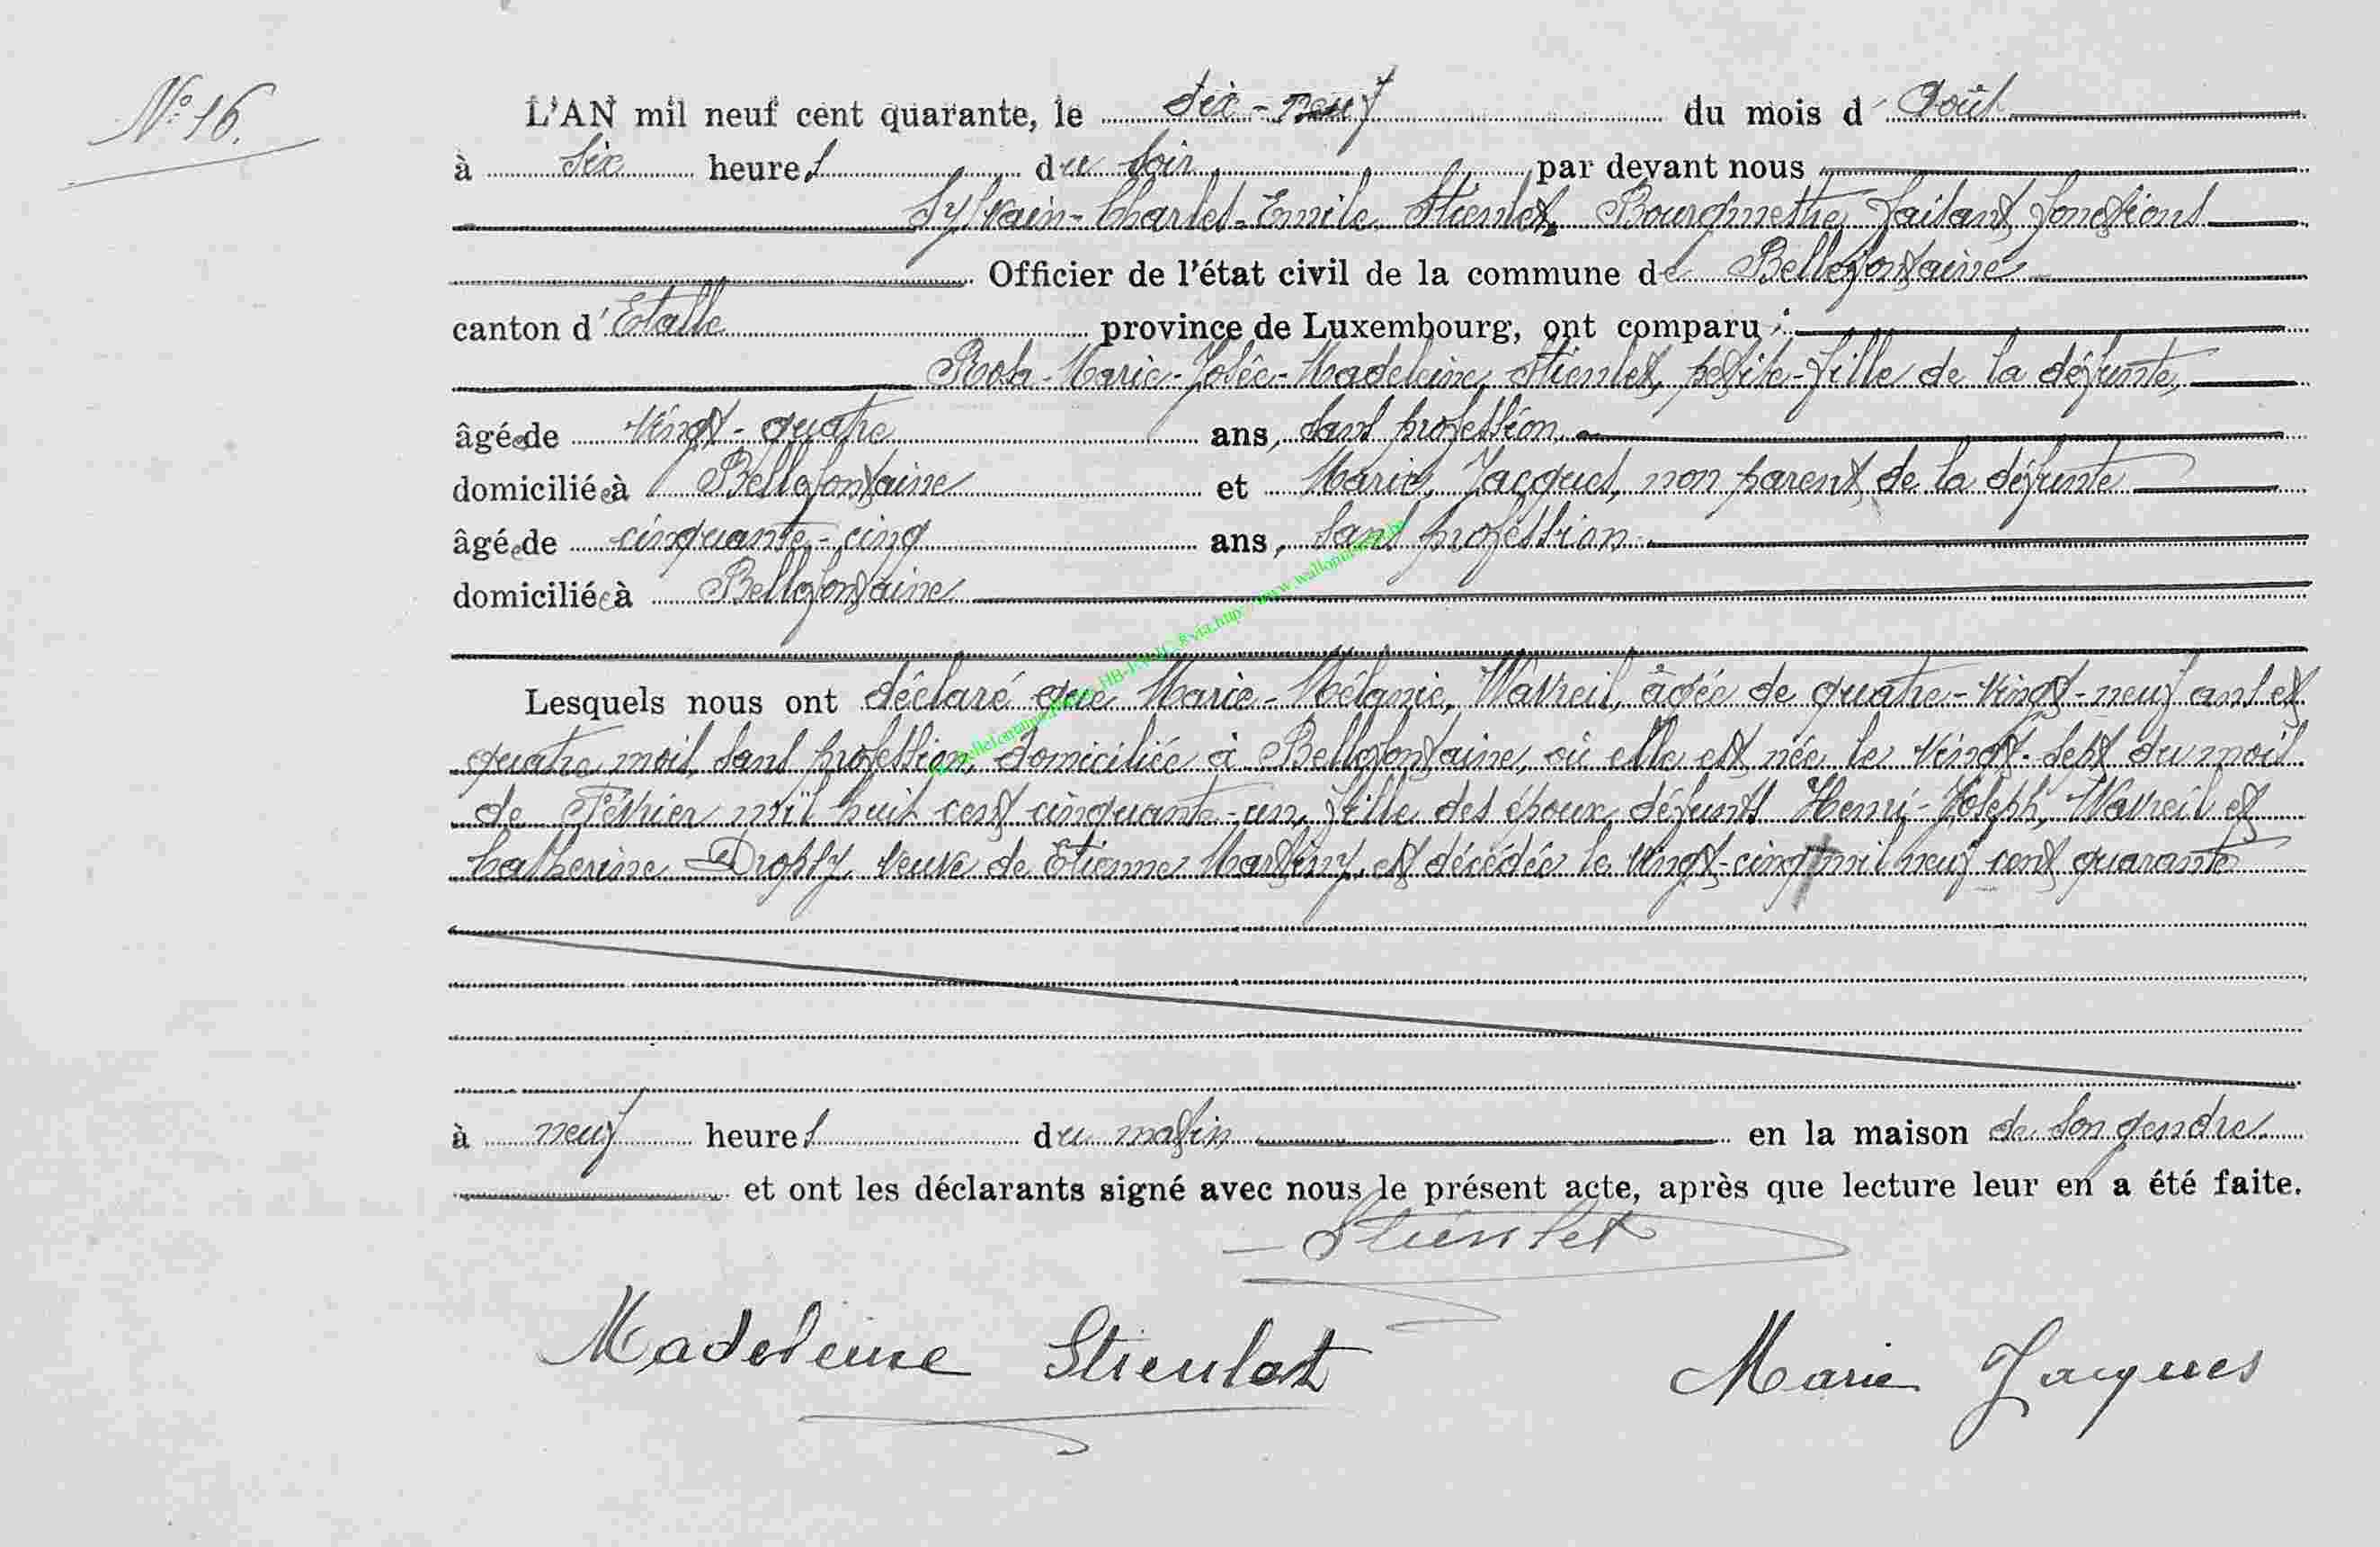 N° 16.
L'AN mil neuf cent quarante, le dix-neuf du mois d' Août
à six heures du soir par devant nous
Sylvain-Charles-Emile, Stienlet, Bourgmestre, faisant fonctions
Officier de l'état civil de la commune de Bellefontaine
canton d' Etalle province de Luxembourg, ont comparu :
Rosa-Marie-Josée-Madeleine, Stienlet, petite-fille de la défunte,
âgée de vingt-quatre ans, sans profession
domiciliée à Bellefontaine et Marie, Jacques, non parent de la défunte
âgée de cinquante-cinq ans, sans profession
domiciliée à Bellefontaine
Lesquels nous ont déclaré que Marie-Mélanie, Wavreil, âgée de quatre-vingt-neuf ans et
quatre mois, sans profession, domiciliée à Bellefontaine, où elle est née le vingt-sept du mois
de Février mil huit cent cinquante-un, fille des époux défunts Henri-Joseph, Wavreil et
Catherine Dropsy, veuve de Etienne Martiny, est décédée le vingt-cinq mil neuf cent quarante
à neuf heures du matin en la maison de son gendre
et ont les déclarants signé avec nous le présent acte, après que lecture leur en a été faite.
Stienlet
Madeleine Stienlet Marie Jacques